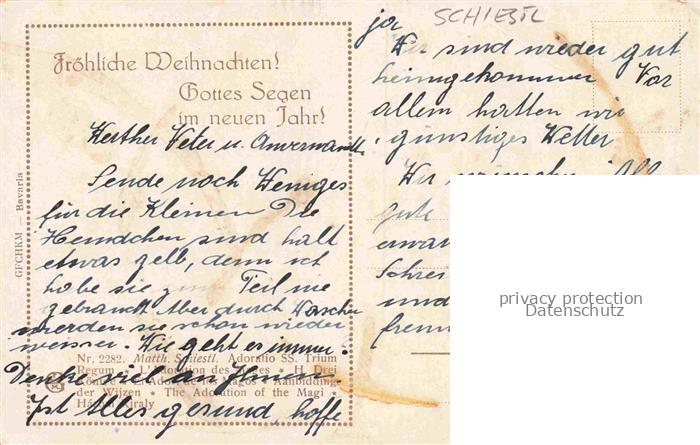 Fröhliche Weihnachten!
Gottes Segen
im neuen Jahr!
Werther Veter u. Anverwandte
Sende noch Weniges
für die Kleinen Die
Hemdchen sind halt
etwas gelb, denn ich
habe sie zum Teil nie
gebraucht Aber durch Waschen
werden sie schon wieder
weisser. Wie geht es immer?
Denke viel an Ihnen.
Ist Alles gesund, hoffe
Nr. 2282. Matth. Schiestl. Adoratio SS. Trium
Regum L'Adoration des Mages H. Drei
Könige Magos Aanbidding
der Wijzen * The Adoration of the Magi *
Király
GFCHKM — Bavaria
SCHIESTL
ja
Wir sind wieder gut
heimgekommen Vor
allem hatten wir
günstiges Wetter
Wir wünschen All
gute
erwar
Schrei
und
freun
privacy protection
Datenschutz